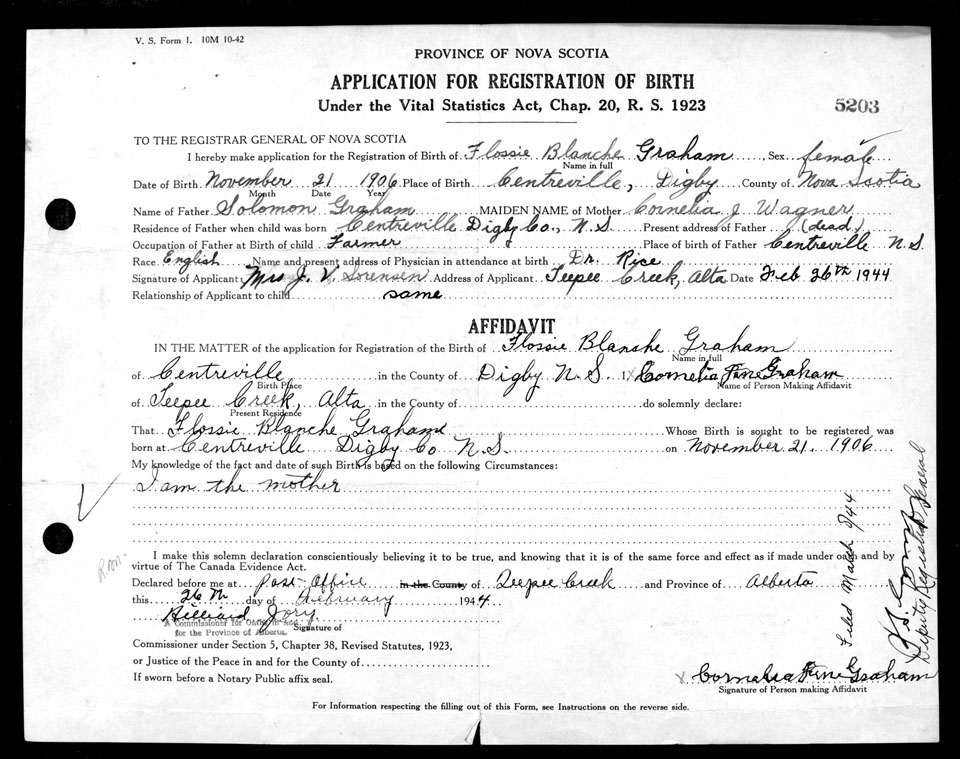 V. S. Form 1. 10M 10-42
PROVINCE OF NOVA SCOTIA
APPLICATION FOR REGISTRATION OF BIRTH
Under the Vital Statistics Act, Chap. 20, R. S. 1923
5203
TO THE REGISTRAR GENERAL OF NOVA SCOTIA
I hereby make application for the Registration of Birth of Flossie Blanche Graham, Sex female
Name in full
Date of Birth November 21 1906 Place of Birth Centreville, Digby County of Nova Scotia
Month Date Year
Name of Father Solomon Graham MAIDEN NAME of Mother Cornelia J Wagner
Residence of Father when child was born Centreville Digby Co., N.S. Present address of Father (dead)
Occupation of Father at Birth of child Farmer Place of Birth of Father Centreville N.S.
Race English Name and present address of Physician in attendance at birth Dr. Rice
Signature of Applicant Mrs J. V. Sorensen Address of Applicant Teepee Creek, Alta Date Feb 26th 1944
Relationship of Applicant to child same
AFFIDAVIT
IN THE MATTER of the application for Registration of the Birth of Flossie Blanche Graham
Name in full
of Centreville in the County of Digby N.S. I x Cornelia Graham
Birth Place Name of Person Making Affidavit
of Teepee Creek, Alta in the County of do solemnly declare:
Present Residence
That Flossie Blanche Graham Whose Birth is sought to be registered was
born at Centreville Digby Co N.S. on November 21, 1906
My knowledge of the fact and date of such Birth is based on the following Circumstances:
I am the mother
I make this solemn declaration conscientiously believing it to be true, and knowing that it is of the same force and effect as if made under oath and by
virtue of The Canada Evidence Act.
Declared before me at Post-Office in the County of Teepee Creek and Province of Alberta
this 26th day of February 1944
Hilliard Jory
A Commissioner for Oaths in and
for the Province of Alberta.
Signature of
Commissioner under Section 5, Chapter 38, Revised Statutes, 1923,
or Justice of the Peace in and for the County of
If sworn before a Notary Public affix seal.
x Cornelia Graham
Signature of Person making Affidavit
For Information respecting the filling out of this Form, see Instructions on the reverse side.
Filed March
Deputy Registrar General